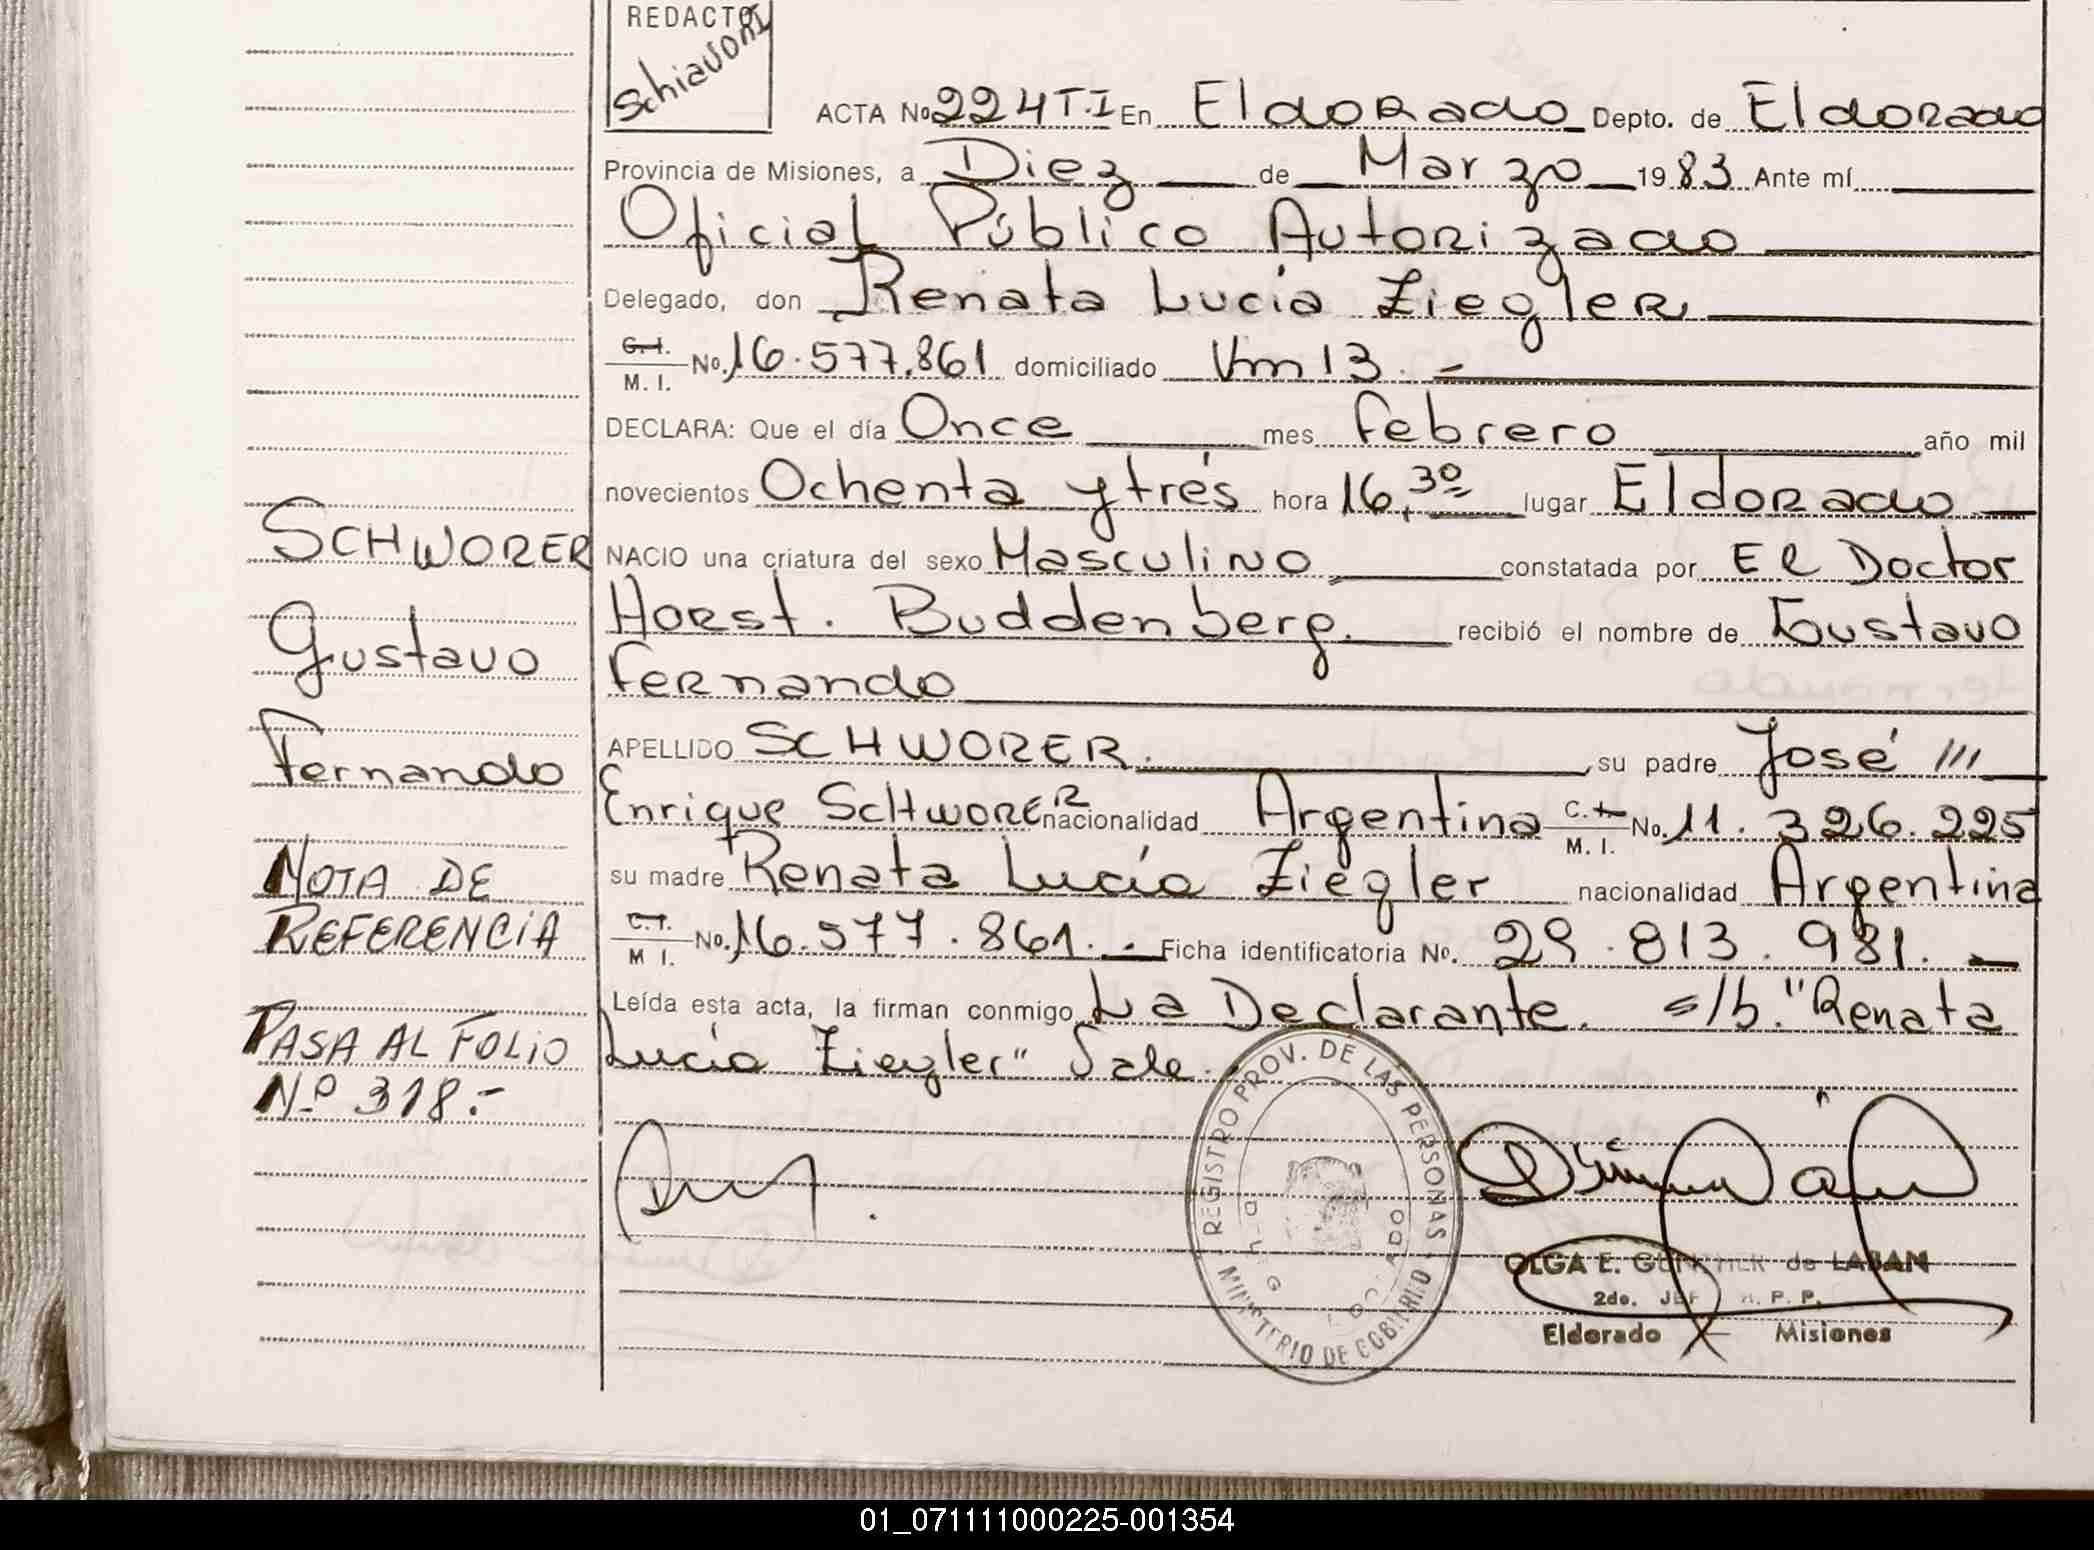 REDACTOR
Schiavoni
ACTA No 224 T.I En Eldorado Depto. de Eldorado
Provincia de Misiones, a Diez de Marzo 1983 Ante mí
Oficial Público Autorizado
Delegado, don Renata Lucía Ziegler
C.I. M. I. No. 16.577.861 domiciliado Km 13. -
DECLARA: Que el día Once mes febrero año mil
novecientos Ochenta y trés hora 16,30 lugar Eldorado
SCHWORER NACIO una criatura del sexo Masculino constatada por El Doctor
Horst. Buddenberg. recibió el nombre de Gustavo
Gustavo
Fernando
APELLIDO SCHWORER. su padre José ///
Fernando
Enrique SCHWORER nacionalidad Argentina C.I. M. I. No. 11.326.225
su madre Renata Lucía Ziegler nacionalidad Argentina
NOTA DE
REFERENCIA C.I. M I. No. 16.577.861. - Ficha identificatoria No. 29.813.981. -
Leída esta acta, la firman conmigo La Declarante. s/b. "Renata
PASA AL FOLIO Lucía Ziegler" Vale.
Nº 318.-
REGISTRO PROV. DE LAS PERSONAS
MINISTERIO DE GOBIERNO
OLGA E. de LABAN
2do. JEF R. P. P.
Eldorado Misiones
01_071111000225-001354